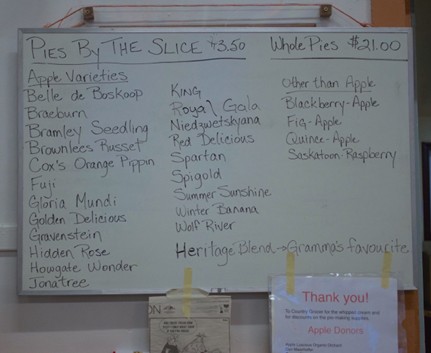 PIES BY THE SLICE $3.50
Apple Varieties
Belle de Boskoop
Braeburn
Bramley Seedling
Brownlees Russet
Cox's Orange Pippin
Fuji
Gloria Mundi
Golden Delicious
Gravenstein
Hidden Rose
Howgate Wonder
Jonatree
KING
Royal Gala
Niedzwetskyana
Red Delicious
Spartan
Spigold
Summer Sunshine
Winter Banana
Wolf River
Heritage Blend → Gramma's favourite
Whole Pies $21.00
Other than Apple
Blackberry-Apple
Fig-Apple
Quince-Apple
Saskatoon-Raspberry
ON
Thank you!
To Country Grocer for the whipped cream and
for discounts on the pie-making supplies.
Apple Donors